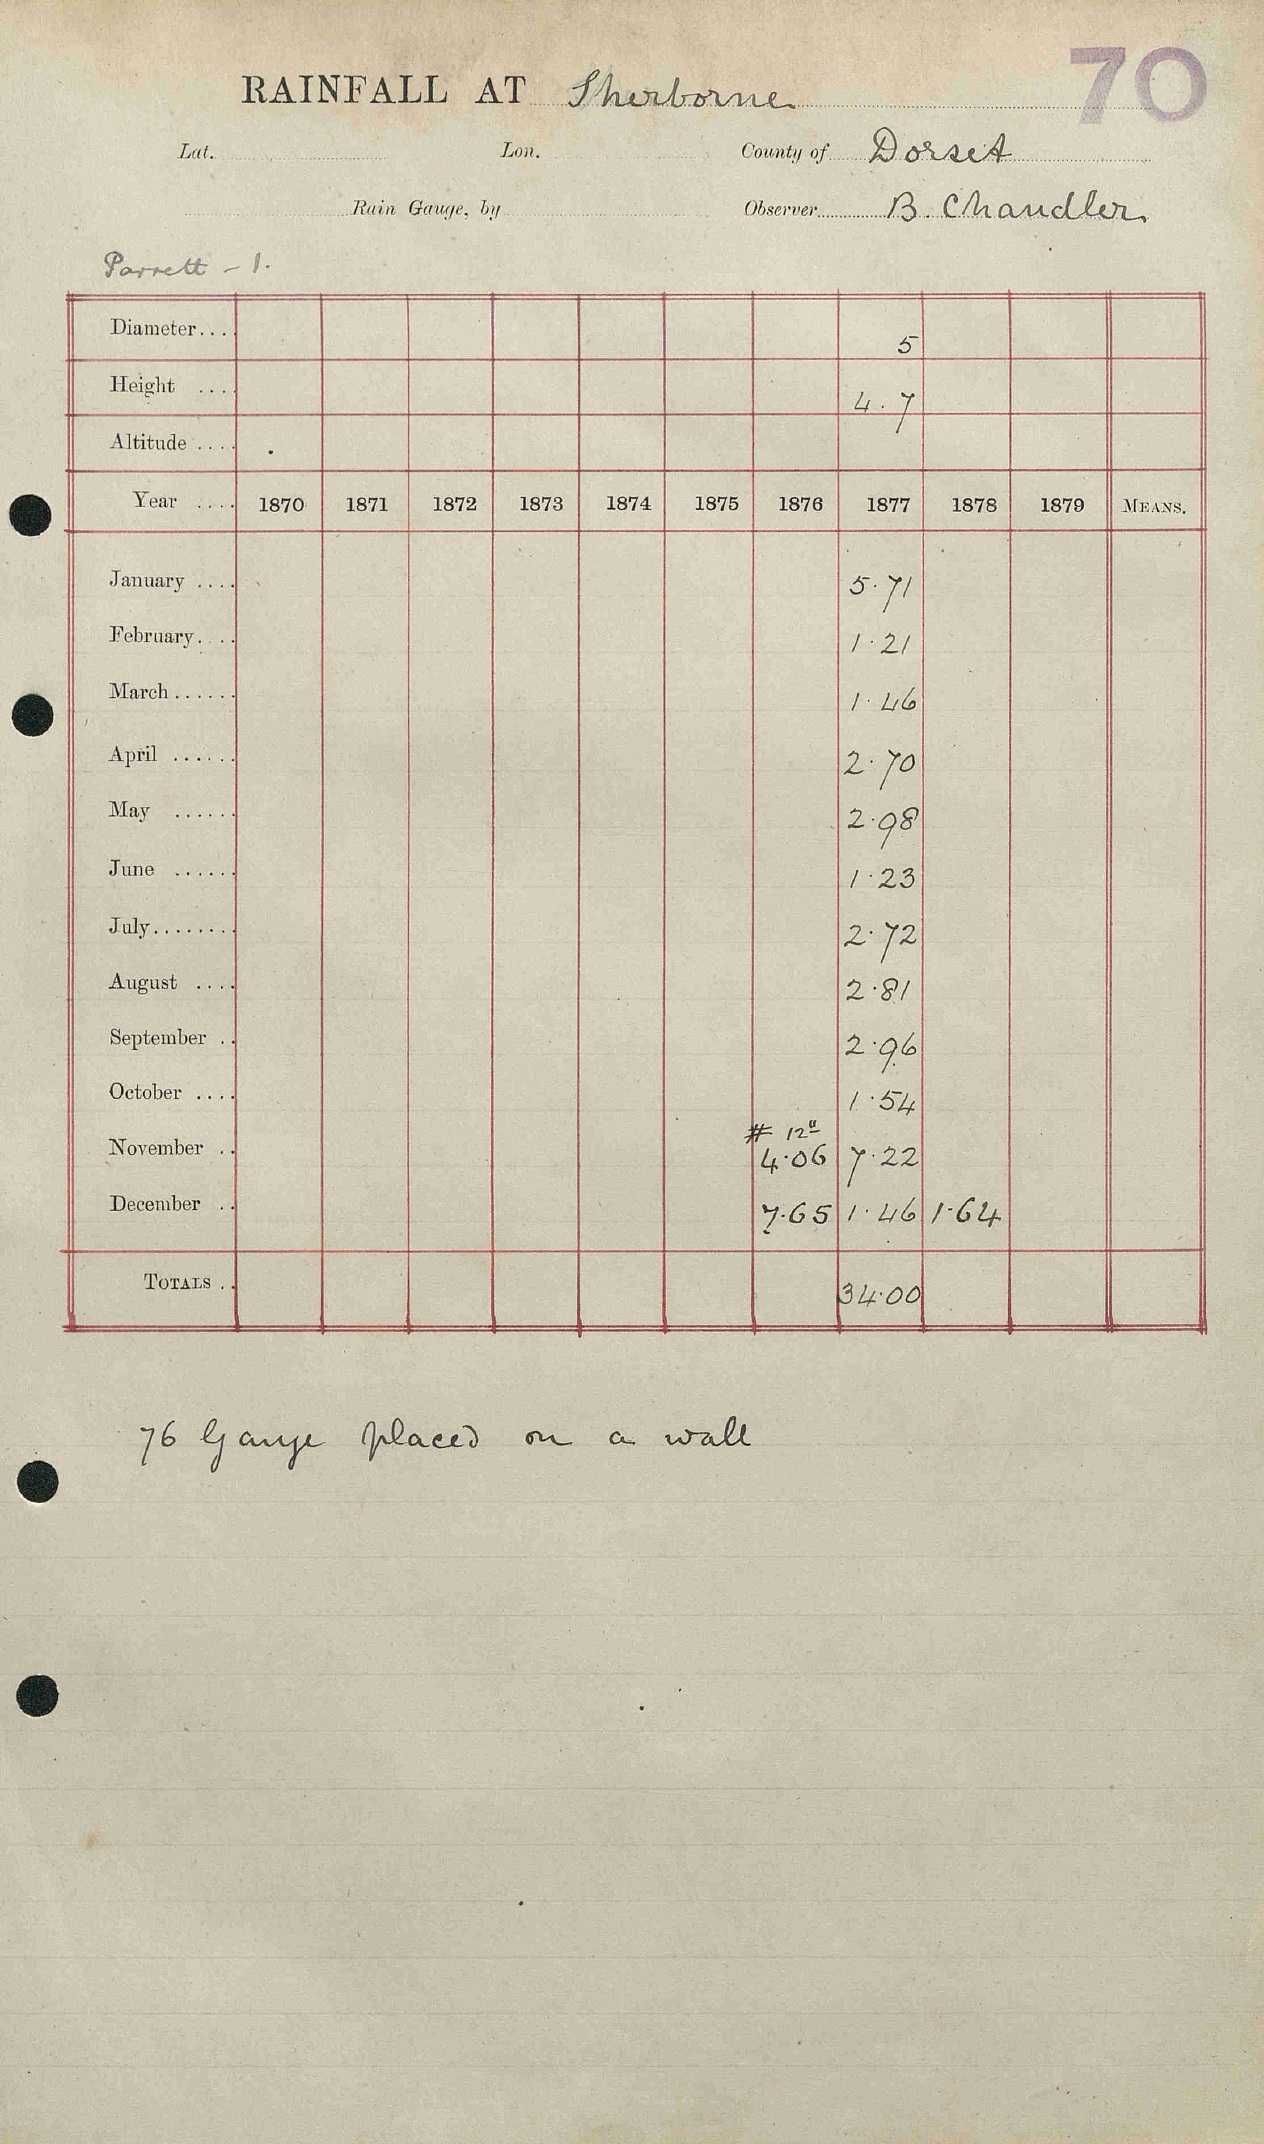 70
RAINFALL AT Sherborne
Lat. Lon. County of Dorset
Rain Gauge, by Observer B. Chandler.
Parrett - 1.
Diameter.... 5
Height .... 4.7
Altitude ....
Year .... 1870 1871 1872 1873 1874 1875 1876 1877 1878 1879 MEANS.
January .... 5.71
February.... 1.21
March...... 1.46
April ...... 2.70
May ...... 2.98
June ...... 1.23
July........ 2.72
August .... 2.81
September .. 2.96
October .... 1.54
# 12"
November .. 4.06 7.22
December .. 7.65 1.46 1.64
TOTALS .. 34.00
76 Gauge placed on a wall